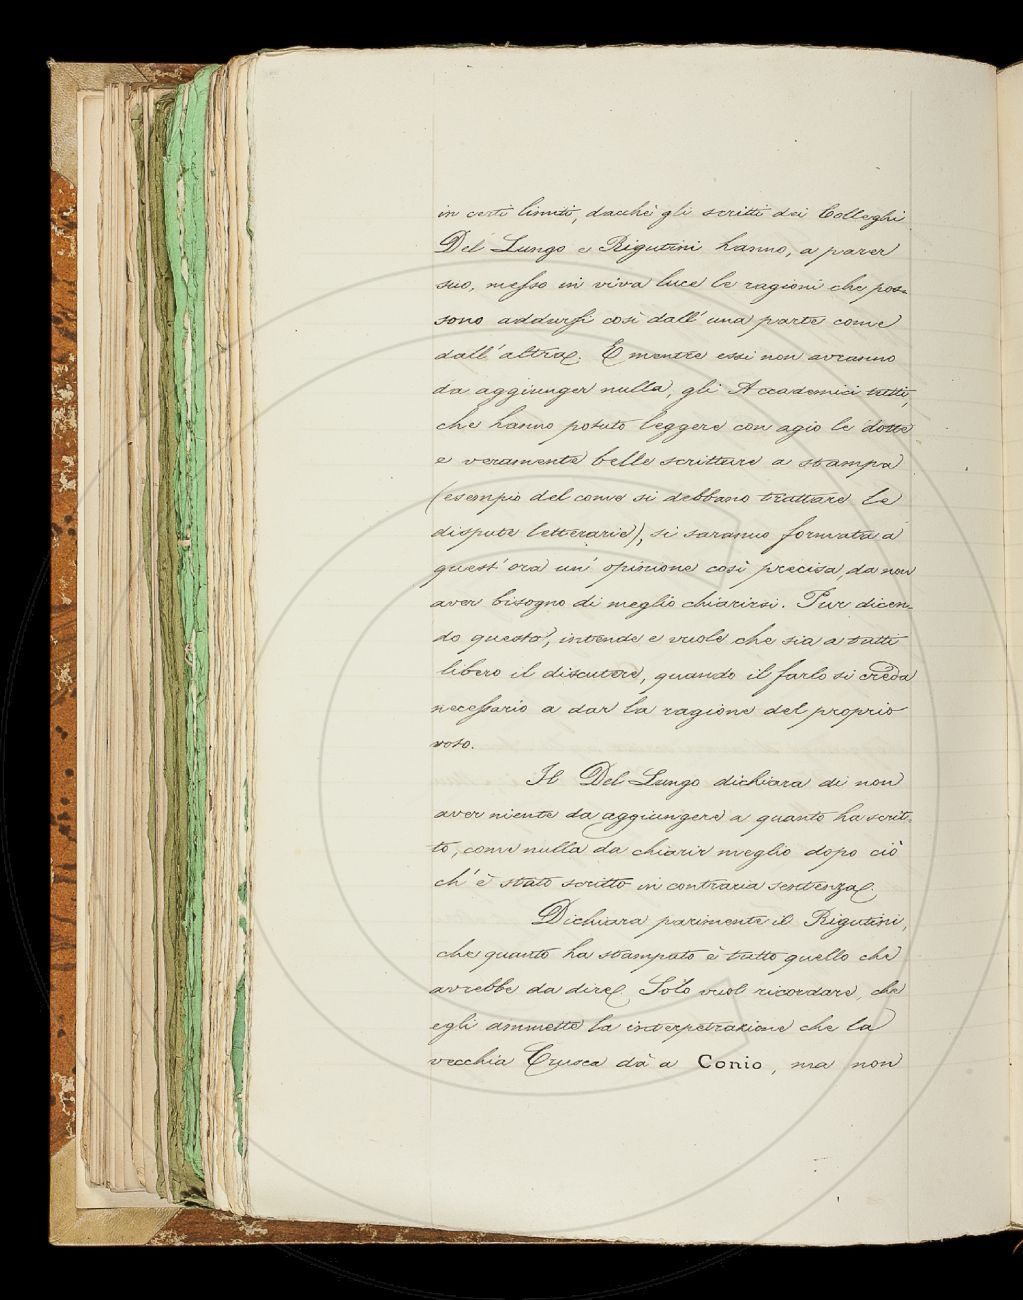 in certi limiti, dacchè gli scritti dei Colleghi
Del Lungo e Rigutini hanno, a parer
suo, messo in viva luce le ragioni che pos-
sono addursi così dall'una parte come
dall'altra. E mentre essi non avranno
da aggiunger nulla, gli Accademici tutti,
che hanno potuto leggere con agio le dotte
e veramente belle scritture a stampa
(esempio del come si debbano trattare le
dispute letterarie), si saranno formata a
quest'ora un'opinione così precisa, da non
aver bisogno di meglio chiarirsi. Pur dicen-
do questo, intende e vuole che sia a tutti
libero il discutere, quando il farlo si creda
necessario a dar la ragione del proprio
voto.
Il Del Lungo dichiara di non
aver niente da aggiungere a quanto ha scrit-
to, come nulla da chiarir meglio dopo ciò
ch'è stato scritto in contraria sentenza.
Dichiara parimente il Rigutini,
che quanto ha stampato è tutto quello che
avrebbe da dire. Solo vuol ricordare, che
egli ammette la interpetrazione che la
vecchia Crusca dà a Conio, ma non